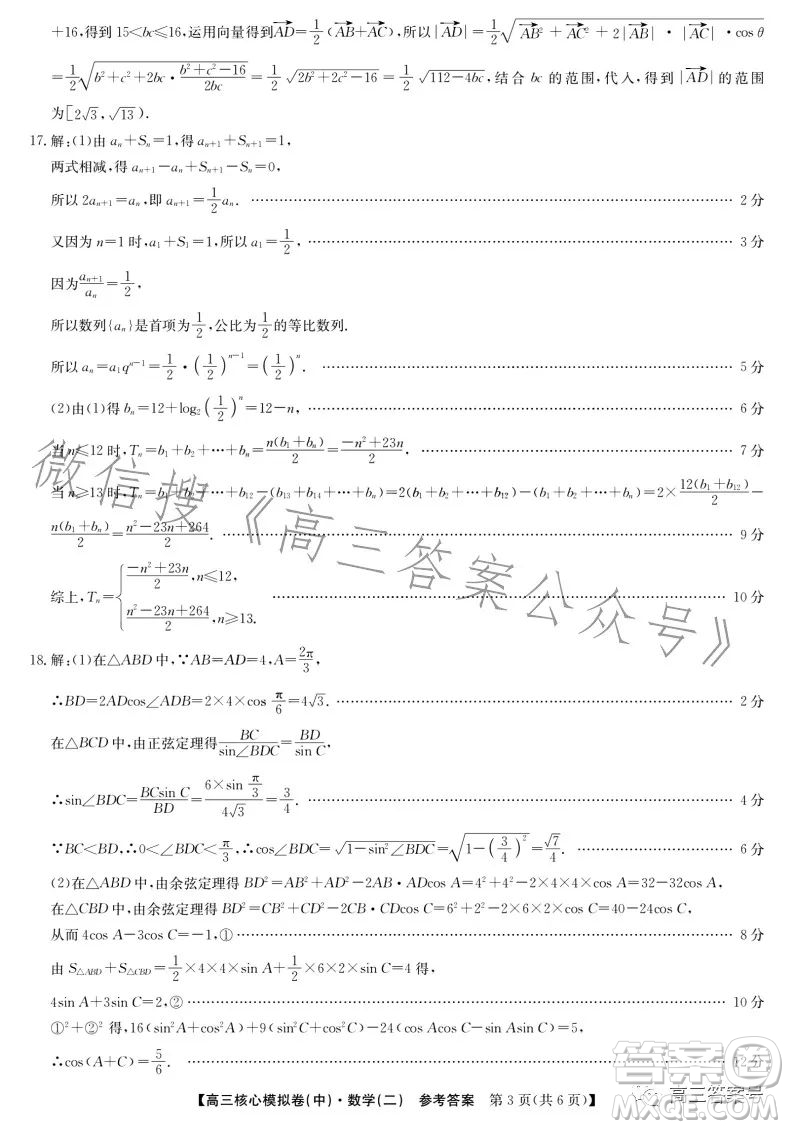 +16,得到 15<bc≤16,运用向量得到$\overrightarrow{AD}=\frac{1}{2}(\overrightarrow{AB}+\overrightarrow{AC})$,所以$|\overrightarrow{AD}|=\frac{1}{2}\sqrt{\overrightarrow{AB}^2+\overrightarrow{AC}^2+2|\overrightarrow{AB}|\cdot|\overrightarrow{AC}|\cdot\cos\theta}$
$=\frac{1}{2}\sqrt{b^2+c^2+2bc\cdot\frac{b^2+c^2-16}{2bc}}=\frac{1}{2}\sqrt{2b^2+2c^2-16}=\frac{1}{2}\sqrt{112-4bc}$,结合 bc 的范围,代入,得到$|\overrightarrow{AD}|$的范围
为$[2\sqrt{3},\sqrt{13})$.
17.解:(1)由 $a_n+S_n=1$,得 $a_{n+1}+S_{n+1}=1$,
两式相减,得 $a_{n+1}-a_n+S_{n+1}-S_n=0$,
所以 $2a_{n+1}=a_n$,即 $a_{n+1}=\frac{1}{2}a_n$. …… 2 分
又因为 n=1 时,$a_1+S_1=1$,所以 $a_1=\frac{1}{2}$, …… 3 分
因为$\frac{a_{n+1}}{a_n}=\frac{1}{2}$,
所以数列$\{a_n\}$是首项为$\frac{1}{2}$,公比为$\frac{1}{2}$的等比数列.
所以 $a_n=a_1q^{n-1}=\frac{1}{2}\cdot(\frac{1}{2})^{n-1}=(\frac{1}{2})^n$. …… 5 分
(2)由(1)得 $b_n=12+\log_2(\frac{1}{2})^n=12-n$, …… 6 分
当 n≤12 时,$T_n=b_1+b_2+\cdots+b_n=\frac{n(b_1+b_n)}{2}=\frac{-n^2+23n}{2}$. …… 7 分
当 n≥13 时,$T_n=b_1+b_2+\cdots+b_{12}-(b_{13}+b_{14}+\cdots+b_n)=2(b_1+b_2+\cdots+b_{12})-(b_1+b_2+\cdots+b_n)=2\times\frac{12(b_1+b_{12})}{2}-$
$\frac{n(b_1+b_n)}{2}=\frac{n^2-23n+264}{2}$. …… 9 分
综上,$T_n=\begin{cases}\frac{-n^2+23n}{2},n≤12,\\\frac{n^2-23n+264}{2},n≥13.\end{cases}$ …… 10 分
18.解:(1)在△ABD 中,∵AB=AD=4,$A=\frac{2\pi}{3}$,
∴$BD=2AD\cos\angle ADB=2\times4\times\cos\frac{\pi}{6}=4\sqrt{3}$. …… 2 分
在△BCD 中,由正弦定理得$\frac{BC}{\sin\angle BDC}=\frac{BD}{\sin C}$,
∴$\sin\angle BDC=\frac{BC\sin C}{BD}=\frac{6\times\sin\frac{\pi}{3}}{4\sqrt{3}}=\frac{3}{4}$. …… 4 分
∵BC<BD,∴$0<\angle BDC<\frac{\pi}{3}$,∴$\cos\angle BDC=\sqrt{1-\sin^2\angle BDC}=\sqrt{1-(\frac{3}{4})^2}=\frac{\sqrt{7}}{4}$. …… 6 分
(2)在△ABD 中,由余弦定理得 $BD^2=AB^2+AD^2-2AB\cdot AD\cos A=4^2+4^2-2\times4\times4\times\cos A=32-32\cos A$,
在△CBD 中,由余弦定理得 $BD^2=CB^2+CD^2-2CB\cdot CD\cos C=6^2+2^2-2\times6\times2\times\cos C=40-24\cos C$,
从而 4cos A-3cos C=-1,① …… 8 分
由 $S_{△ABD}+S_{△CBD}=\frac{1}{2}\times4\times4\times\sin A+\frac{1}{2}\times6\times2\times\sin C=4$ 得,
4sin A+3sin C=2,② …… 10 分
①²+②² 得,$16(\sin^2A+\cos^2A)+9(\sin^2C+\cos^2C)-24(\cos A\cos C-\sin A\sin C)=5$,
∴$\cos(A+C)=\frac{5}{6}$. …… 12 分
【高三核心模拟卷(中)·数学(二) 参考答案 第 3 页(共 6 页)】
微信搜《高三答案公众号》
高三答案号
答案圈
MXQE.COM